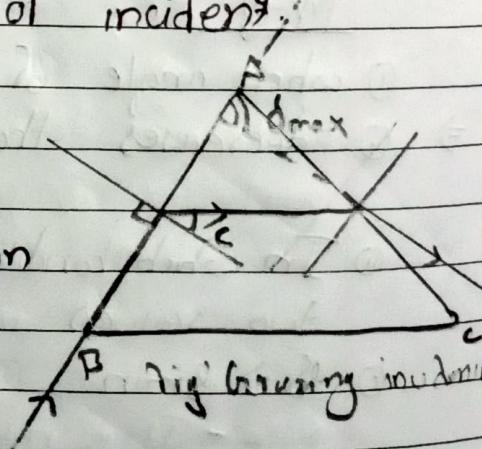 of incident.
A
δmax
c
n
B
C
fig: Grazing incidence